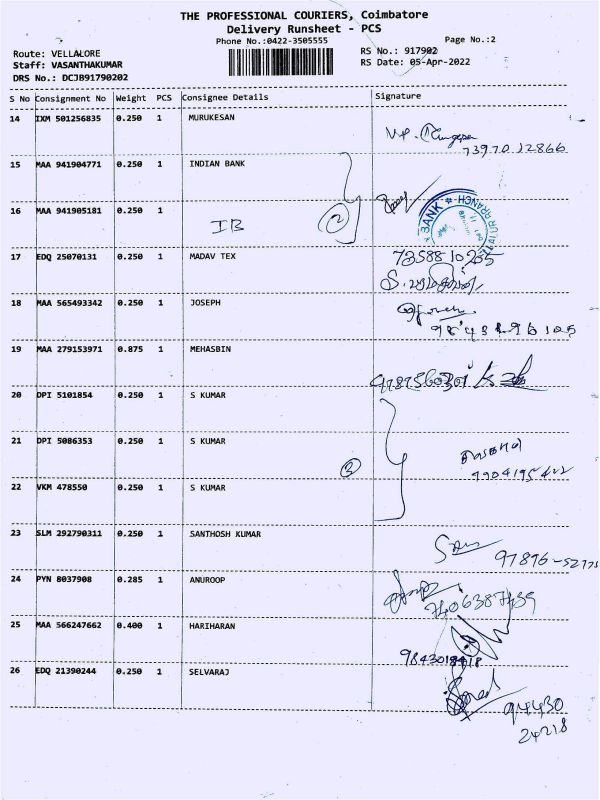 THE PROFESSIONAL COURIERS, Coimbatore
Delivery Runsheet - PCS
Phone No.:0422-3505555
Page No.:2
Route: VELLALORE
Staff: VASANTHAKUMAR
DRS No.: DCJB91790202
RS No.: 917902
RS Date: 05-Apr-2022
S No Consignment No Weight PCS Consignee Details Signature
14 IXM 501256835 0.250 1 MURUKESAN
73970 12866
15 MAA 941904771 0.250 1 INDIAN BANK
16 MAA 941905181 0.250 1
IB
2
BANK
BRANCH
17 EDQ 25070131 0.250 1 MADAV TEX
7358810235
18 MAA 565493342 0.250 1 JOSEPH
19 MAA 279153971 0.875 1 MEHASBIN
20 DPI 5101854 0.250 1 S KUMAR
21 DPI 5086353 0.250 1 S KUMAR
3
22 VKM 478550 0.250 1 S KUMAR
23 SLM 292790311 0.250 1 SANTHOSH KUMAR
97876-52775
24 PYN 8037908 0.285 1 ANUROOP
7406387439
25 MAA 566247662 0.400 1 HARIHARAN
9843018418
26 EDQ 21390244 0.250 1 SELVARAJ
94430
24218